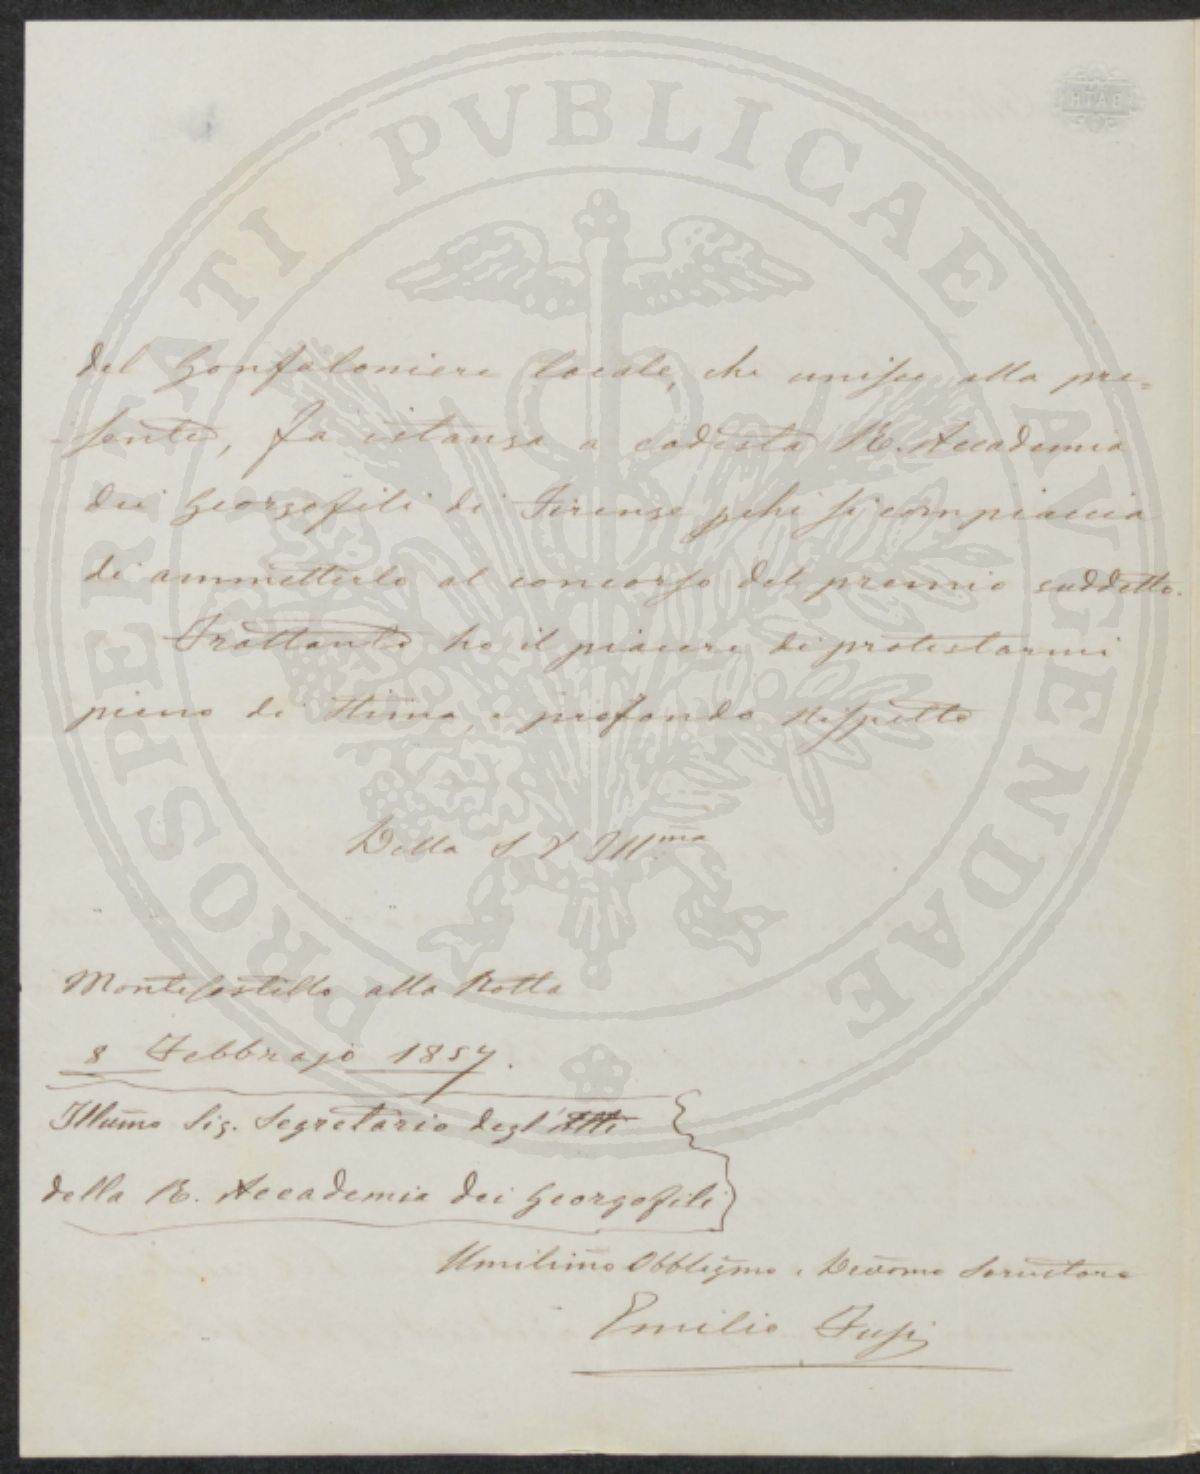 PROSPERITATI PVBLICAE AVGENDAE
del Gonfaloniere locale, che unisce alla pre=
=sente, fa istanza a codesta R. Accademia
dei Georgofili di Firenze pchè si compiaccia
di ammetterlo al concorso del premio suddetto.
Frattanto ho il piacere di protestarmi
pieno di stima, e profondo rispetto
Della S V Ill.ma
Montecastello alla Rotta
8 Febbrajo 1857.
Illumo Sig. Segretario degl'Atti
della R. Accademia dei Georgofili
Umilimo Obbligmo e Devomo Servitore
Emilio